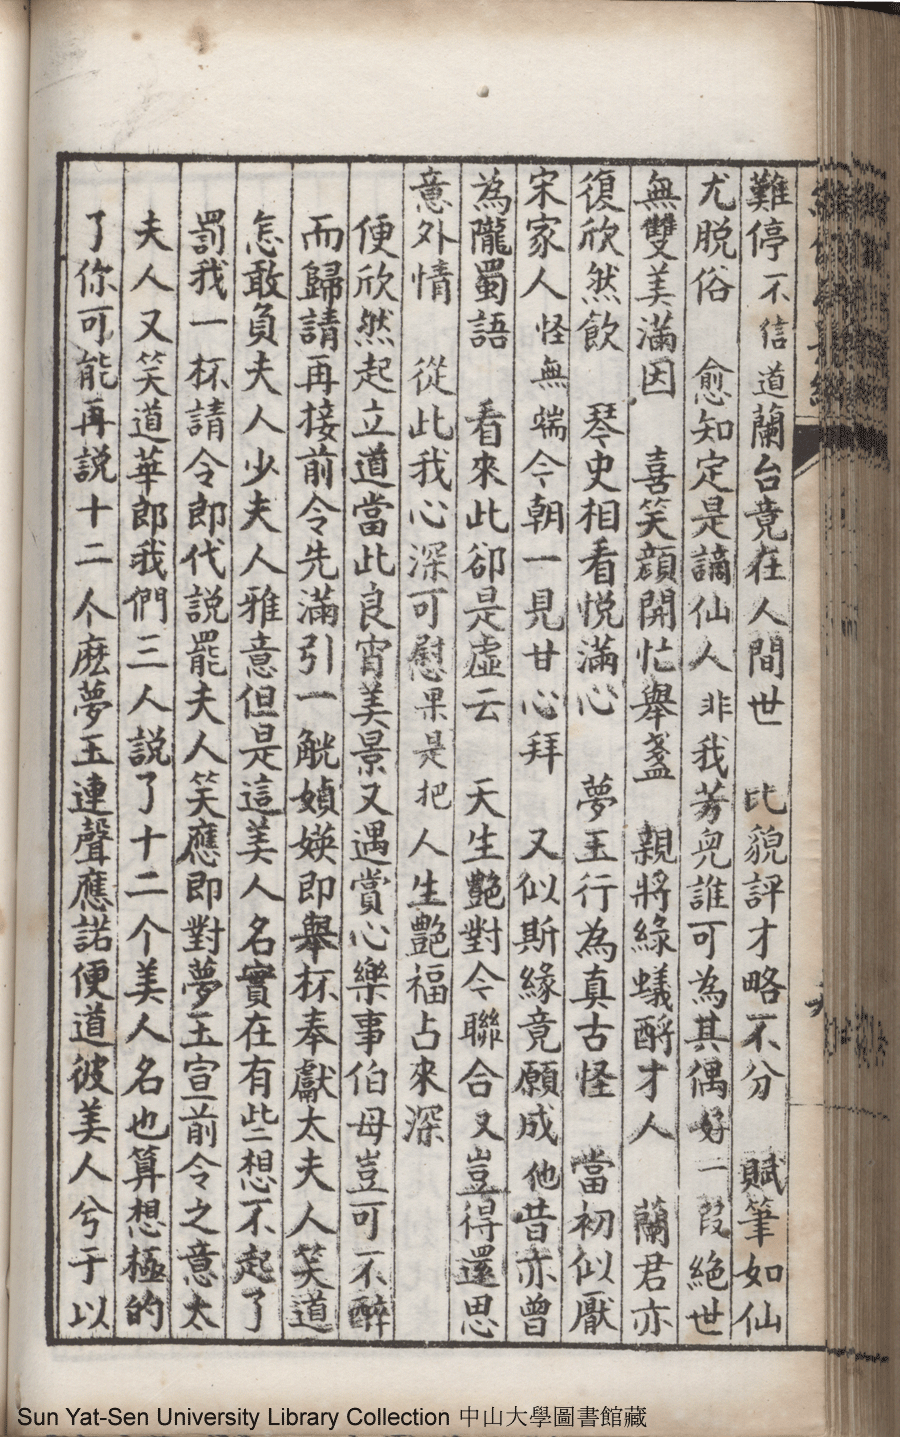 難停不信道蘭台竟在人間世　比貌評才略不分　賦筆如仙
尤脱俗　愈知定是謫仙人非我芳兒誰可為其偶好一段絕世
無雙美滿因　喜笑顔開忙舉盞　親將綠蟻酹才人　蘭君亦
復欣然飲　琴史相看悅滿心　夢玉行為真古怪　當初似厭
宋家人怪無端今朝一見甘心拜　又似斯緣竟願成他昔亦曾
為隴蜀語　看來此卻是虛云　天生艷對今聯合又豈得還思
意外情　從此我心深可慰果是把人生艷福占來深
便欣然起立道當此良宵美景又遇賞心樂事伯母豈可不醉
而歸請再接前令先滿引一觥媜媖即舉杯奉獻太夫人笑道
怎敢負夫人少夫人雅意但是這美人名實在有些想不起了
罰我一杯請令郎代說罷夫人笑應即對夢玉宣前令之意太
夫人又笑道華郎我們三人說了十二个美人名也算想極的
了你可能再說十二个麽夢玉連聲應諾便道彼美人兮于以
Sun Yat-Sen University Library Collection 中山大學圖書館藏